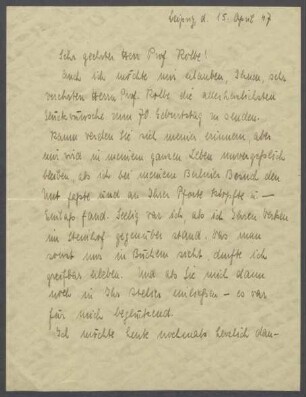 Leipzig d. 15. April 47
Sehr geehrter Herr Prof. Kolbe!
Auch ich möchte mir erlauben, Ihnen, sehr
verehrten Herrn Prof. Kolbe die allerherzlichsten
Glückwünsche zum 70. Geburtstag zu senden.
Kaum werden Sie sich meiner erinnern, aber
mir wird in meinem ganzen Leben unvergesslich
bleiben als ich bei meinem Berliner Besuch den
Mut fasste und an Ihre Pforte klopfte u –
Einlass fand. Seelig war ich als ich Ihren Werken
im Steinhof gegenüber stand. Was man
sonst nur in Büchern sieht, durfte ich
greifbar erleben. Und als Sie mich dann
noch in Ihr Atelier – es war
für mich beglückend.
Ich möchte heute nochmals herzlich dan-